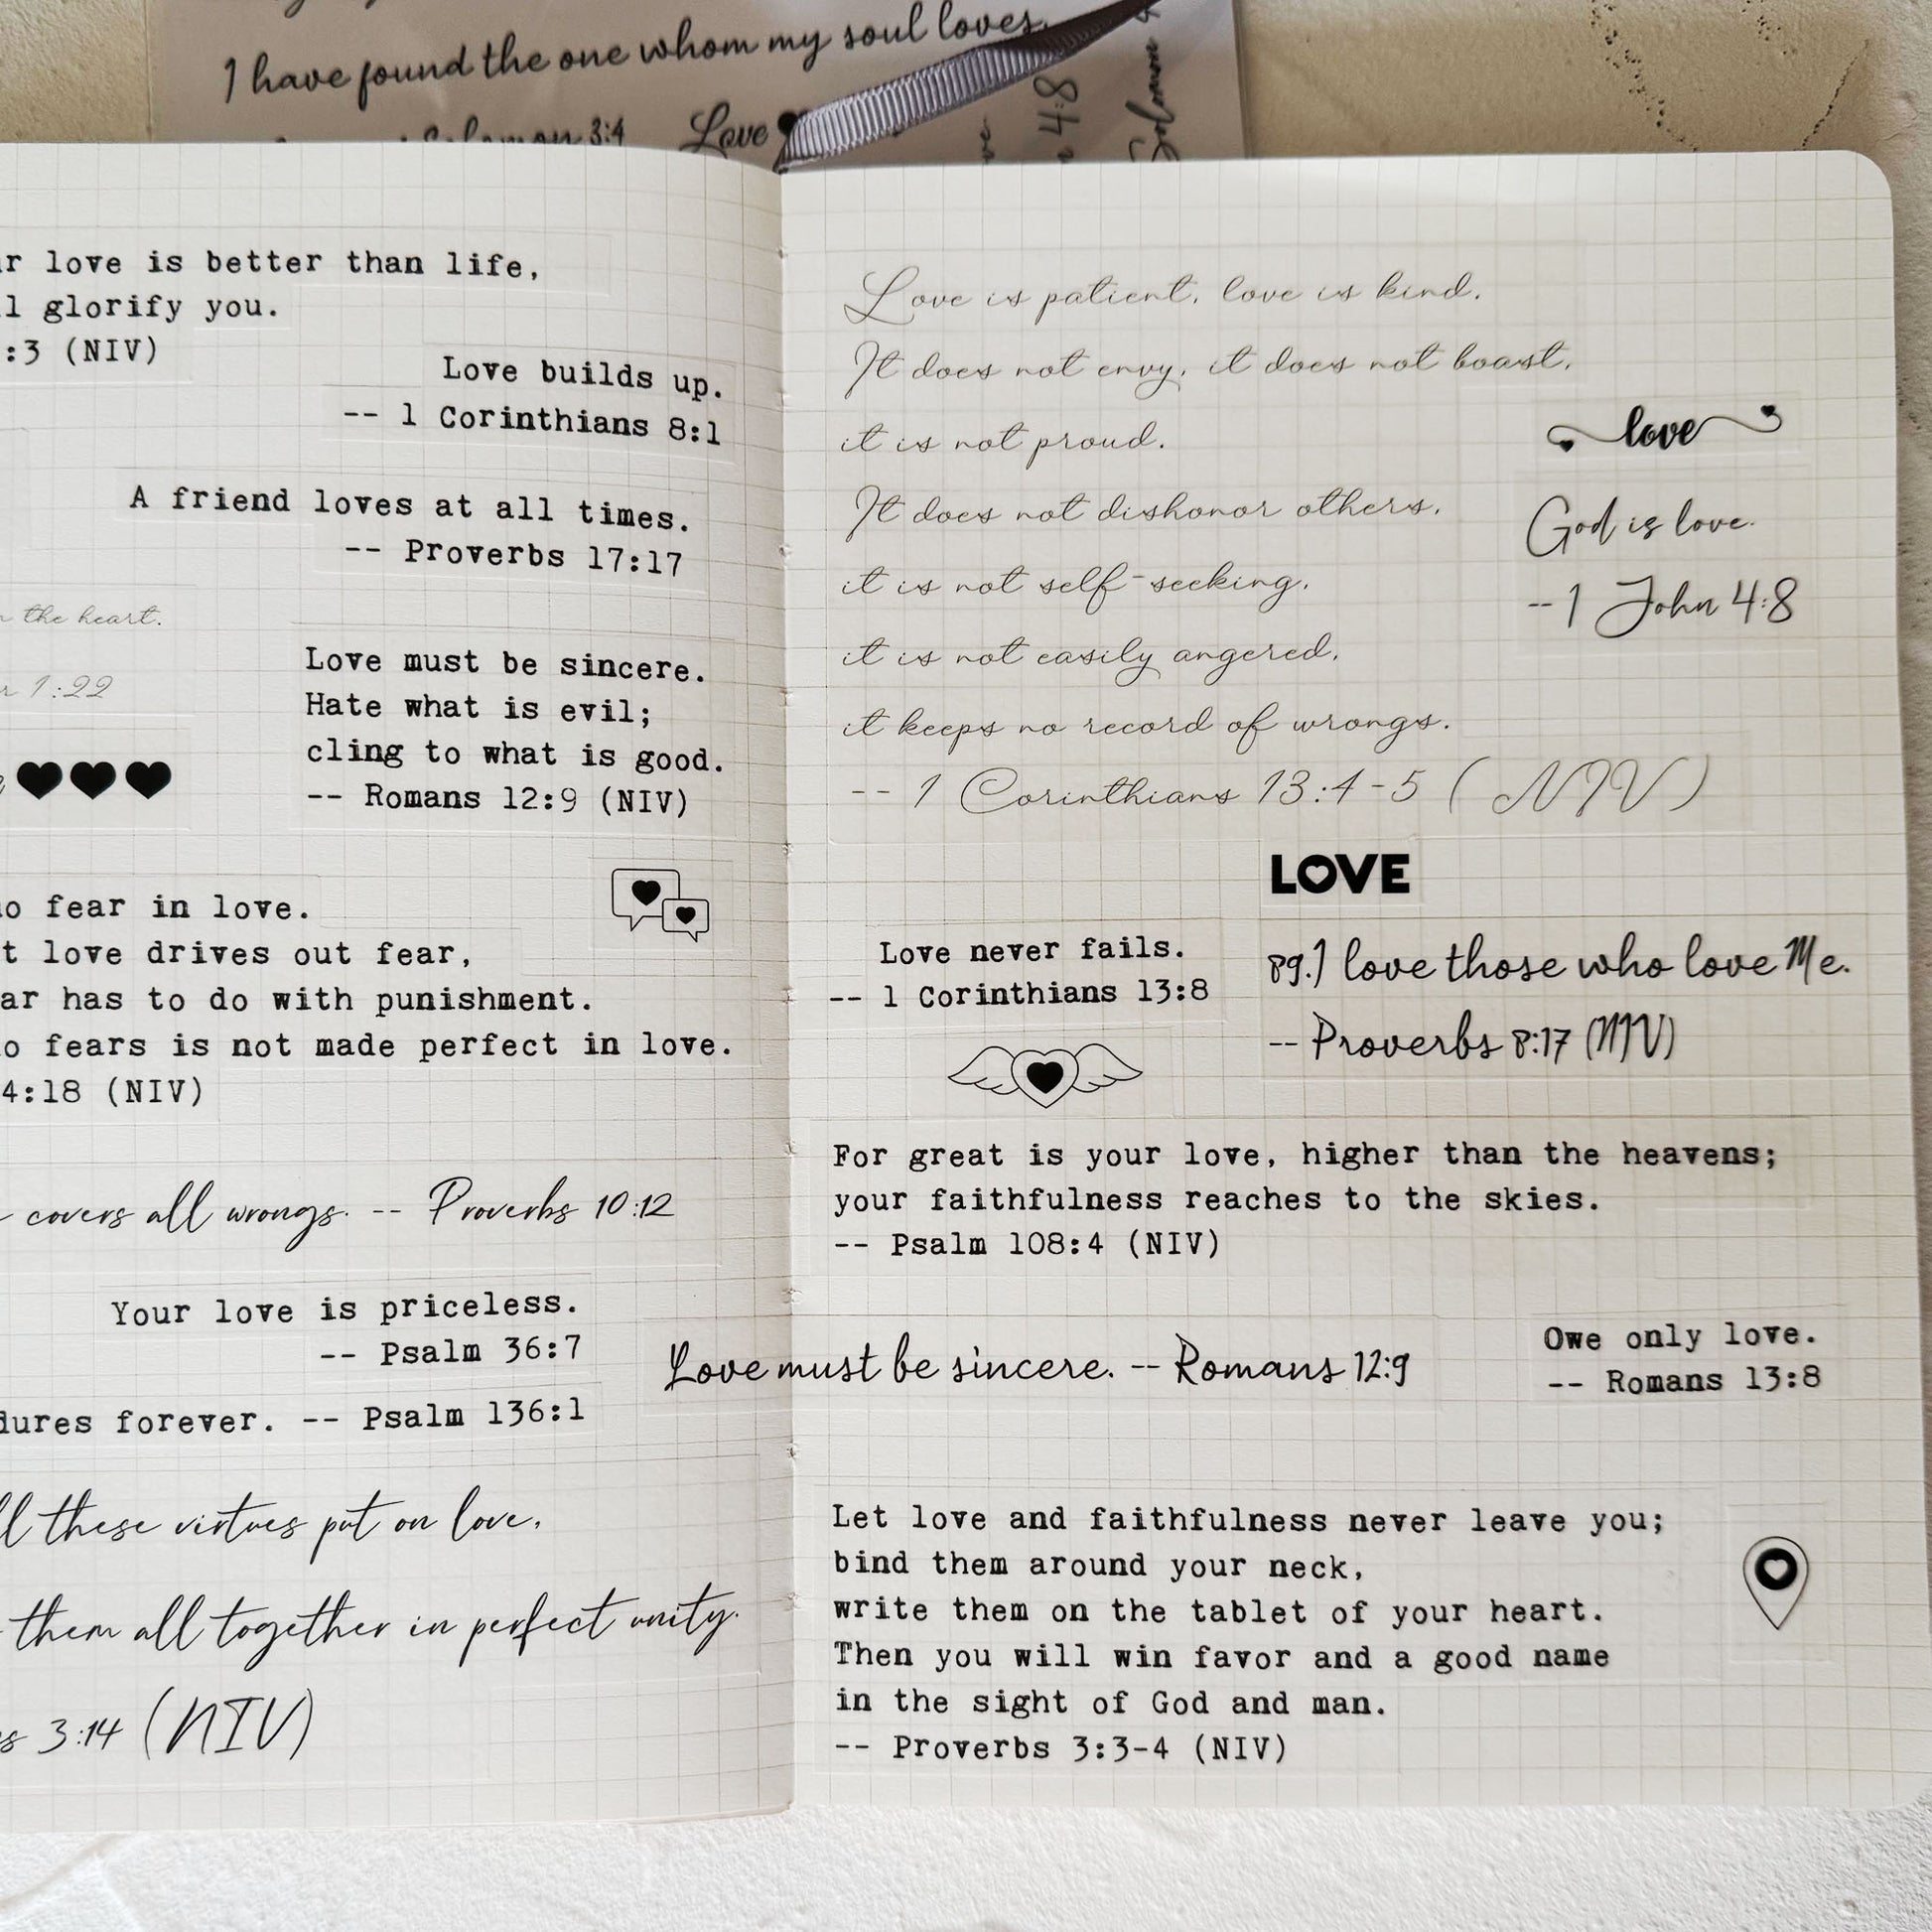 I have found the one whom my soul loves.
Solomon 3:4
Love
4:8
Solomon
love is better than life,
glorify you.
:3 (NIV)
Love builds up.
-- 1 Corinthians 8:1
A friend loves at all times.
-- Proverbs 17:17
the heart.
1:22
Love must be sincere.
Hate what is evil;
cling to what is good.
-- Romans 12:9 (NIV)
fear in love.
love drives out fear,
has to do with punishment.
fears is not made perfect in love.
4:18 (NIV)
covers all wrongs. -- Proverbs 10:12
Your love is priceless.
-- Psalm 36:7
forever. -- Psalm 136:1
these virtues put on love,
them all together in perfect unity.
3:14 (NIV)
Love is patient, love is kind.
It does not envy, it does not boast,
it is not proud.
It does not dishonor others,
it is not self-seeking,
it is not easily angered,
it keeps no record of wrongs.
-- 1 Corinthians 13:4-5 ( NIV )
love
God is love.
-- 1 John 4:8
LOVE
Love never fails.
-- 1 Corinthians 13:8
89.I love those who love Me.
-- Proverbs 8:17 (NIV)
For great is your love, higher than the heavens;
your faithfulness reaches to the skies.
-- Psalm 108:4 (NIV)
Love must be sincere. -- Romans 12:9
Owe only love.
-- Romans 13:8
Let love and faithfulness never leave you;
bind them around your neck,
write them on the tablet of your heart.
Then you will win favor and a good name
in the sight of God and man.
-- Proverbs 3:3-4 (NIV)